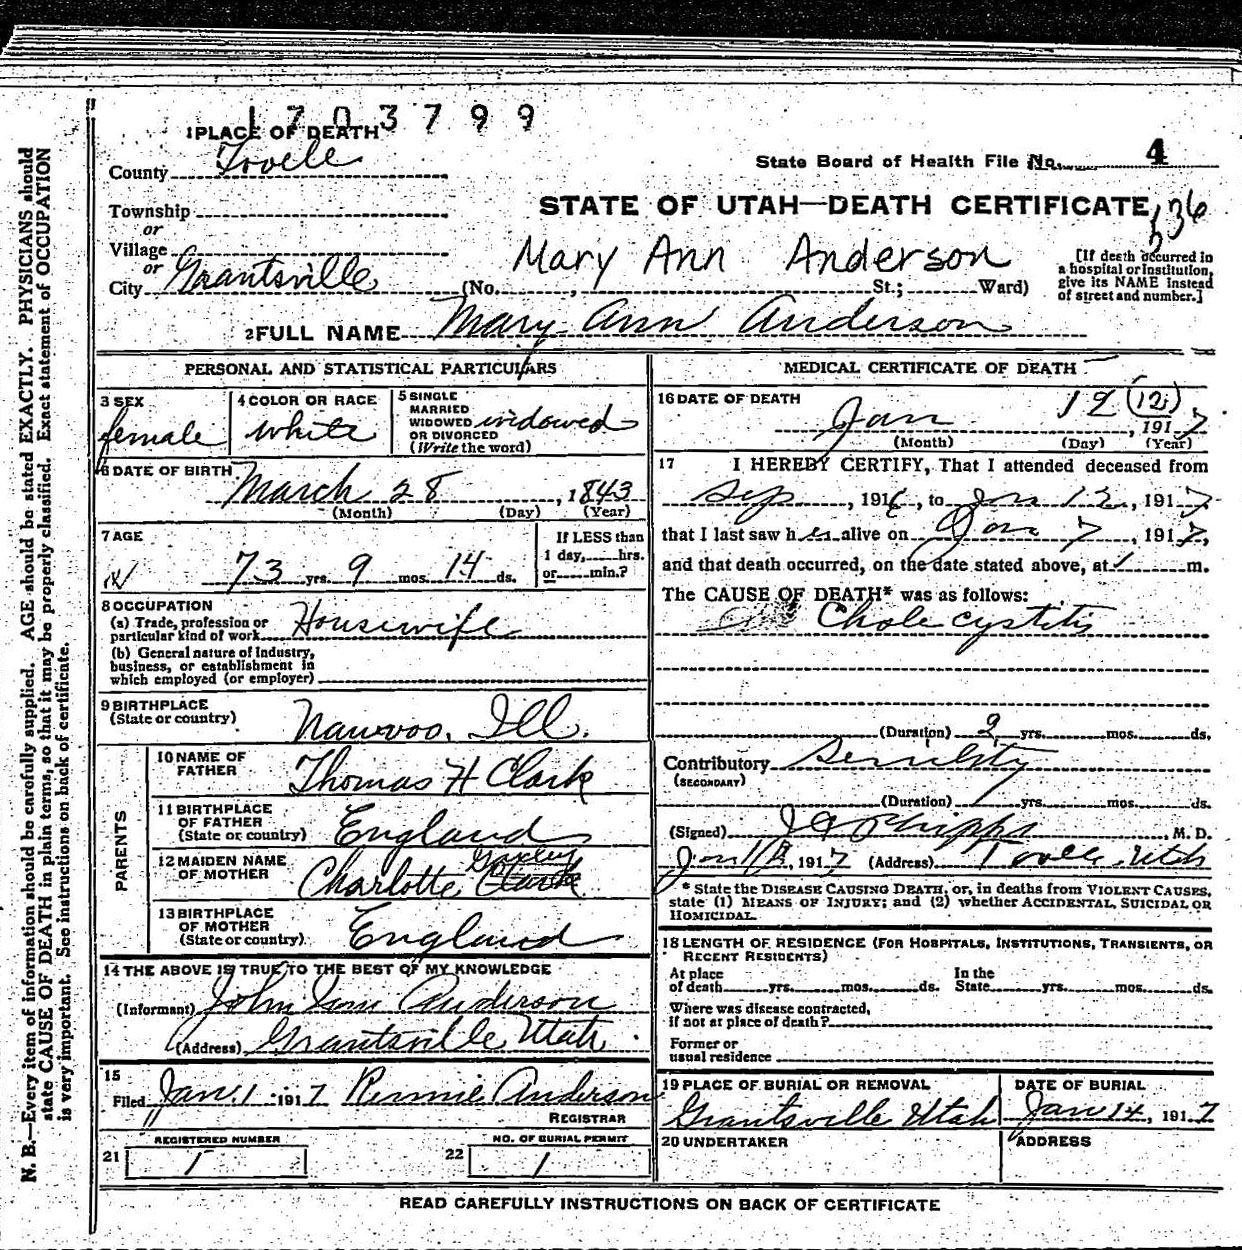 1703799
1 PLACE OF DEATH
County Tooele
State Board of Health File No. 4
Township
or
STATE OF UTAH—DEATH CERTIFICATE
Village
or
Mary Ann Anderson
[If death occurred in
a hospital or institution,
give its NAME instead
of street and number.]
City Grantsville (No. , St.; Ward)
2 FULL NAME Mary Ann Anderson
PERSONAL AND STATISTICAL PARTICULARS
3 SEX
female
4 COLOR OR RACE
white
5 SINGLE
MARRIED
WIDOWED
OR DIVORCED
(Write the word)
widowed
6 DATE OF BIRTH
March 28, 1843
(Month) (Day) (Year)
7 AGE
73 yrs. 9 mos. 14 ds.
If LESS than
1 day, hrs.
or min.?
8 OCCUPATION
(a) Trade, profession or
particular kind of work Housewife
(b) General nature of Industry,
business, or establishment in
which employed (or employer)
9 BIRTHPLACE
(State or country)
Nauvoo, Ill.
PARENTS
10 NAME OF
FATHER
Thomas H Clark
11 BIRTHPLACE
OF FATHER
(State or country)
England
12 MAIDEN NAME
OF MOTHER
Charlotte Gaxley
Clark
13 BIRTHPLACE
OF MOTHER
(State or country)
England
14 THE ABOVE IS TRUE TO THE BEST OF MY KNOWLEDGE
(Informant) John Anderson
(Address) Grantsville Utah.
15
Filed Jan. 1 1917 Rennie Anderson
REGISTRAR
REGISTERED NUMBER
21 1
NO. OF BURIAL PERMIT
22 1
MEDICAL CERTIFICATE OF DEATH
16 DATE OF DEATH
Jan 12 (12) , 1917
(Month) (Day) (Year)
17 I HEREBY CERTIFY, That I attended deceased from
Sep , 1916, to Jan 12, 1917,
that I last saw her alive on Jan 7, 1917,
and that death occurred, on the date stated above, at 1 m.
The CAUSE OF DEATH* was as follows:
Chole cystitis
(Duration) 2 yrs. mos. ds.
Contributory Senility
(SECONDARY)
(Duration) yrs. mos. ds.
(Signed) Phipps, M. D.
Jan 12, 1917 (Address) Tooele Utah
* State the DISEASE CAUSING DEATH, or, in deaths from VIOLENT CAUSES,
state (1) MEANS OF INJURY; and (2) whether ACCIDENTAL, SUICIDAL OR
HOMICIDAL.
18 LENGTH OF RESIDENCE (FOR HOSPITALS, INSTITUTIONS, TRANSIENTS, OR
RECENT RESIDENTS)
At place
of death yrs. mos. ds.
In the
State yrs. mos. ds.
Where was disease contracted,
if not at place of death?
Former or
usual residence
19 PLACE OF BURIAL OR REMOVAL
Grantsville Utah
DATE OF BURIAL
Jan 14, 1917
20 UNDERTAKER
ADDRESS
READ CAREFULLY INSTRUCTIONS ON BACK OF CERTIFICATE
N. B.—Every item of information should be carefully supplied. AGE should be stated EXACTLY. PHYSICIANS should
state CAUSE OF DEATH in plain terms, so that it may be properly classified. Exact statement of OCCUPATION
is very important. See instructions on back of certificate.